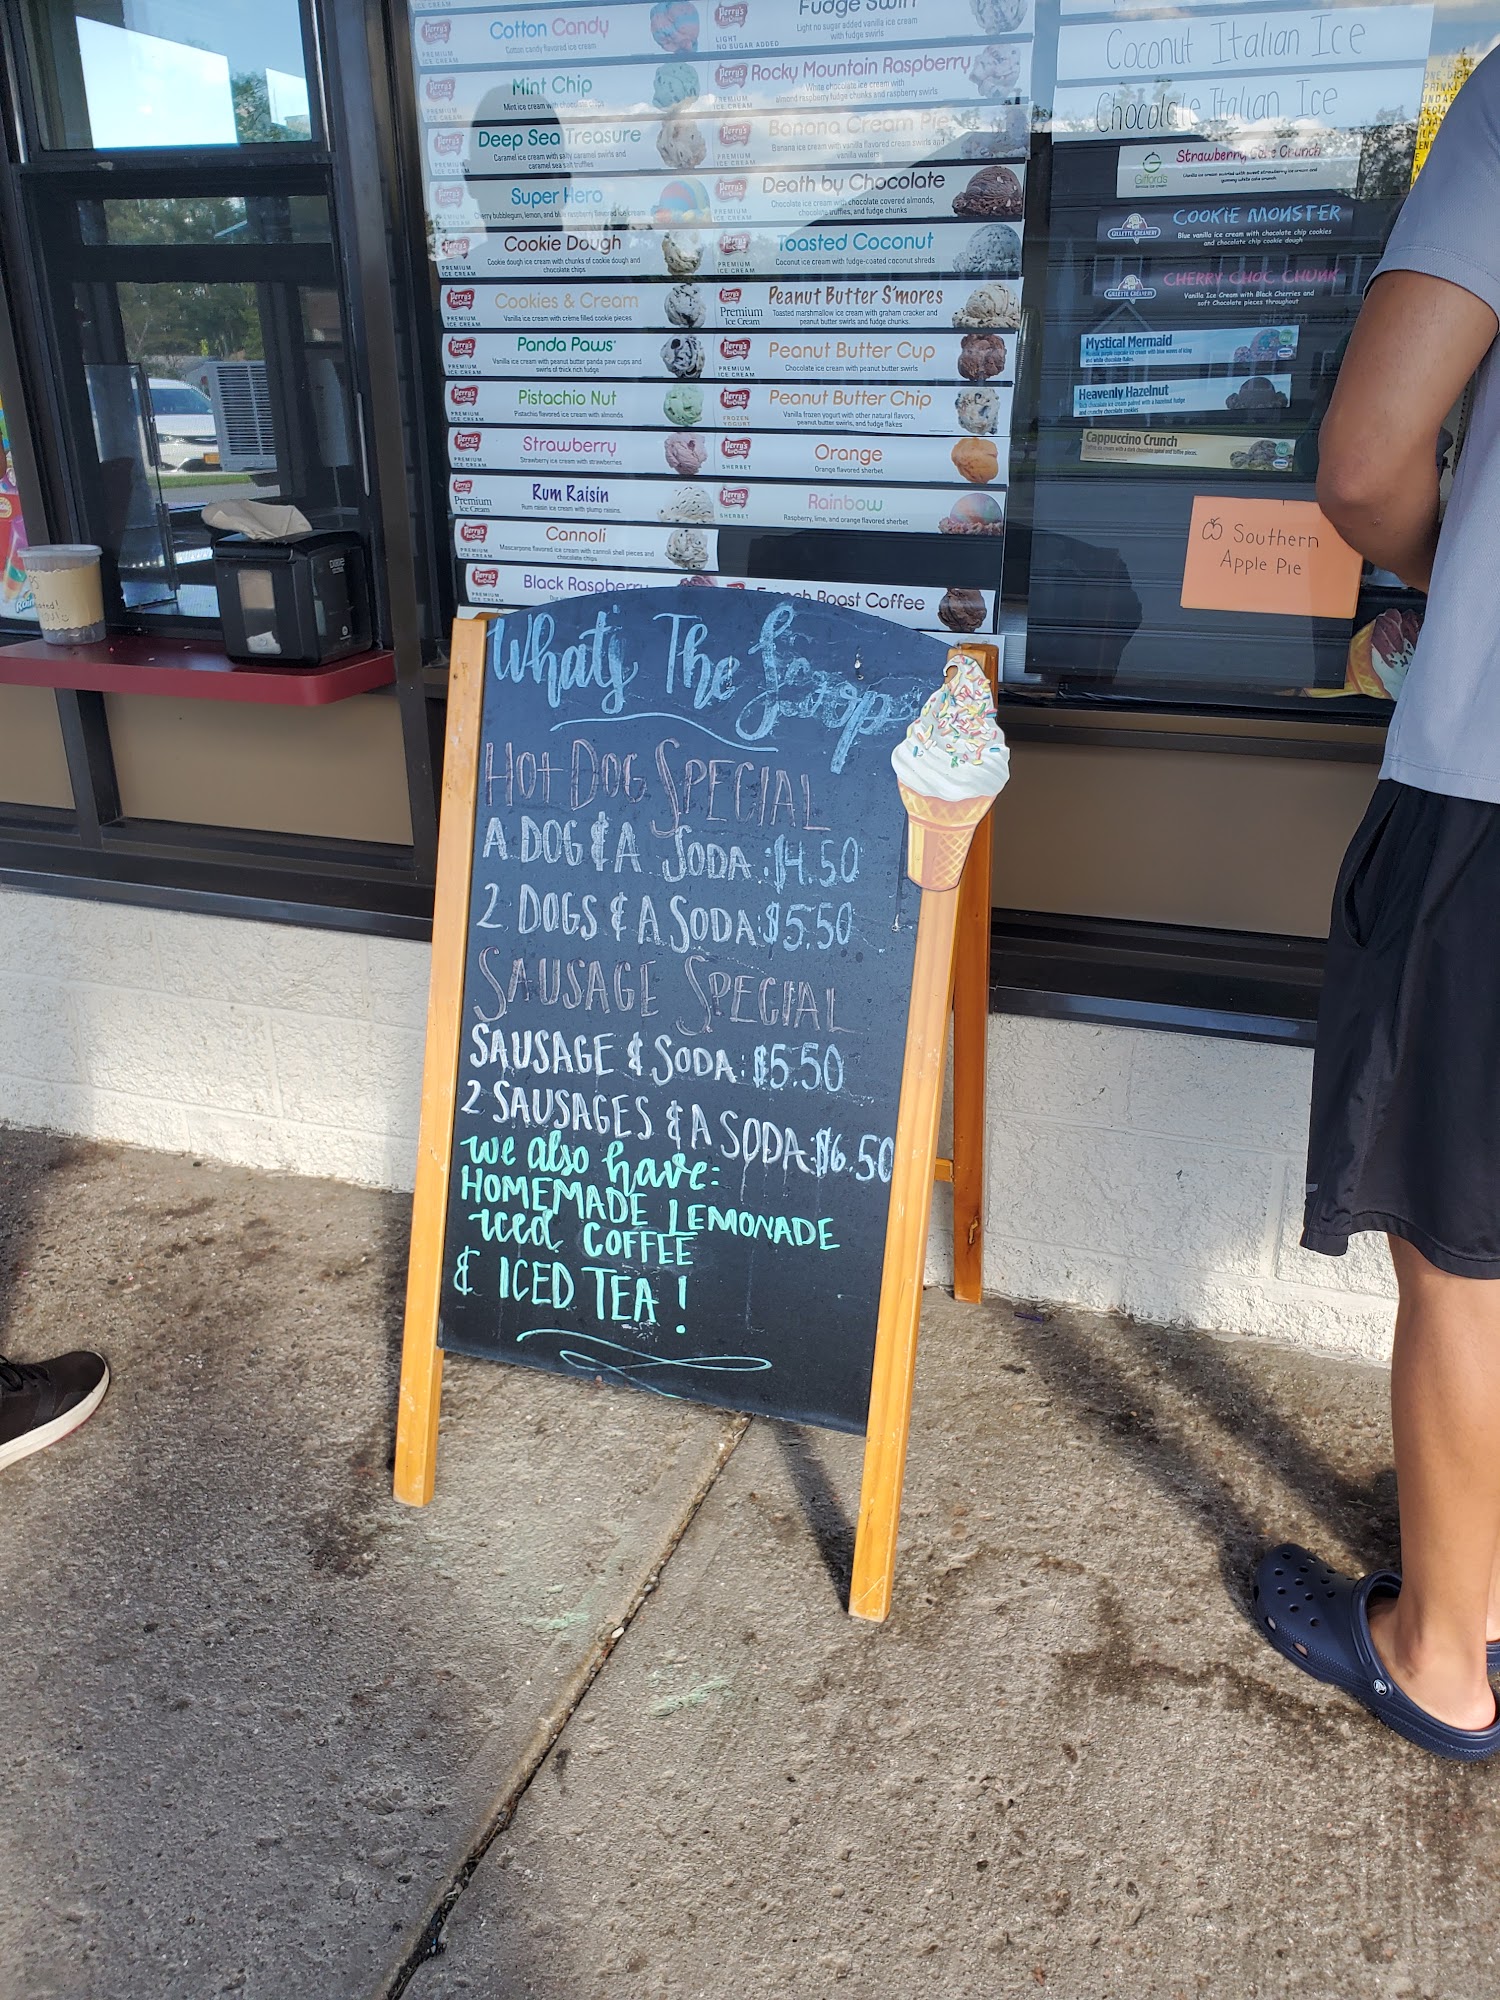 Cotton Candy
Cotton candy flavored ice cream
Mint Chip
Mint ice cream with chocolate chips
Deep Sea Treasure
Caramel ice cream with salty caramel swirls and
caramel sea salt truffles
Super Hero
Cherry bubblegum, lemon, and blue raspberry flavored ice cream
Cookie Dough
Cookie dough ice cream with chunks of cookie dough and
chocolate chips
Cookies & Cream
Vanilla ice cream with crème filled cookie pieces
Panda Paws
Vanilla ice cream with peanut butter panda paw cups and
swirls of thick rich fudge
Pistachio Nut
Pistachio flavored ice cream with almonds
Strawberry
Strawberry ice cream with strawberries
Rum Raisin
Rum raisin ice cream with plump raisins
Cannoli
Mascarpone flavored ice cream with cannoli shell pieces and
chocolate chips
Black Raspberry
Fudge Swirl
Light no sugar added vanilla ice cream
with fudge swirls
LIGHT
NO SUGAR ADDED
Perry's
Rocky Mountain Raspberry
White chocolate ice cream with
almond raspberry fudge chunks and raspberry swirls
Banana Cream Pie
Banana ice cream with vanilla flavored cream swirls and
vanilla wafers
Death by Chocolate
Chocolate ice cream with chocolate covered almonds,
chocolate truffles, and fudge chunks
Toasted Coconut
Coconut ice cream with fudge-coated coconut shreds
Perry's
Premium
Ice Cream
Peanut Butter S'mores
Toasted marshmallow ice cream with graham cracker and
peanut butter swirls and fudge chunks.
Peanut Butter Cup
Chocolate ice cream with peanut butter swirls
FROZEN
YOGURT
Peanut Butter Chip
Vanilla frozen yogurt with other natural flavors,
peanut butter swirls, and fudge flakes
SHERBET
Orange
Orange flavored sherbet
SHERBET
Rainbow
Raspberry, lime, and orange flavored sherbet
French Roast Coffee
Coconut Italian Ice
Chocolate Italian Ice
Gifford's
Strawberry Cake Crunch
GILLETTE CREAMERY
COOKIE MONSTER
Blue vanilla ice cream with chocolate chip cookies
and chocolate chip cookie dough
GILLETTE CREAMERY
CHERRY CHOC CHUNK
Vanilla Ice Cream with Black Cherries and
soft Chocolate pieces throughout
Mystical Mermaid
Heavenly Hazelnut
Cappuccino Crunch
Southern
Apple Pie
What's The Scoop
HOT DOG SPECIAL
A DOG & A SODA: $4.50
2 DOGS & A SODA: $5.50
SAUSAGE SPECIAL
SAUSAGE & SODA: $5.50
2 SAUSAGES & A SODA: $6.50
we also have:
HOMEMADE LEMONADE
iced COFFEE
& ICED TEA!